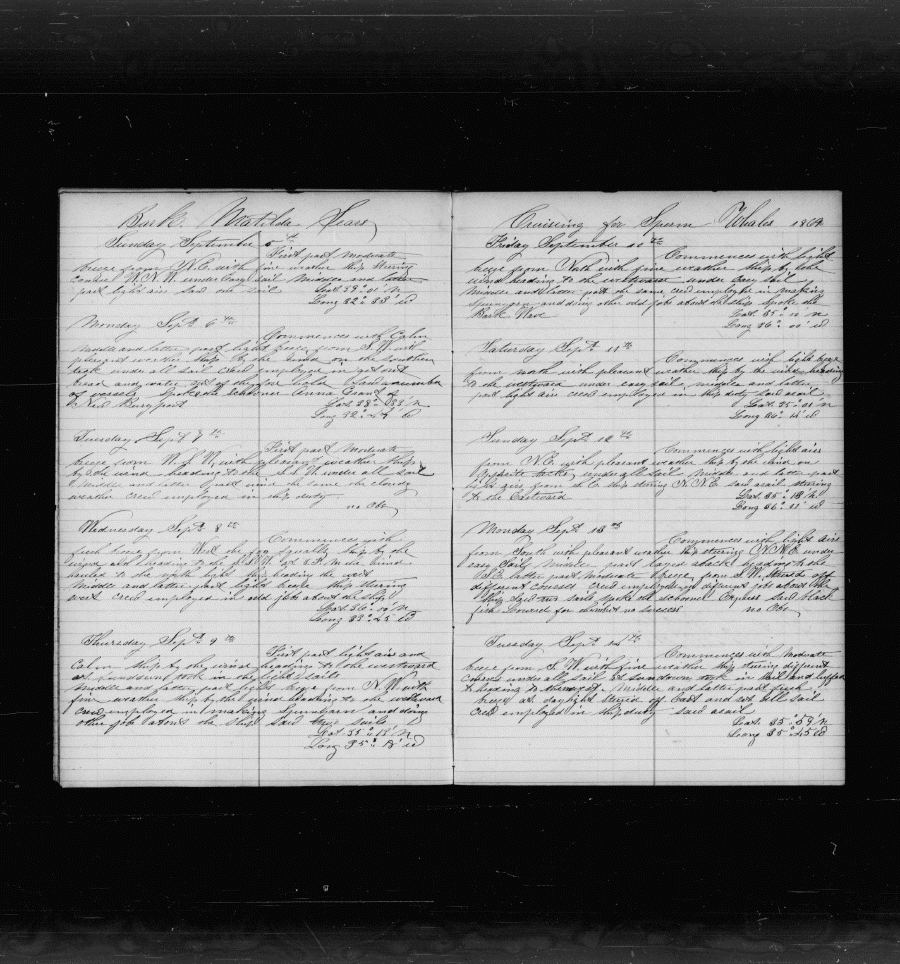 Bark Matilda Sears
Sunday September 5th
First part moderate
breeze from N.E. with fine weather ship steering
W.N.W. under easy sail Middle and latter
part light airs said one sail
Lat 39° 01' N
Long 32° 38' W
Monday Sept 6th
Commences with Calm
middle and latter part light breeze from S.W. with
pleasant weather ship by the wind on the southern
tack under all sail crew employed in got out
bread and water out of the fore hold saw a number
of vessels Spoke the schooner Anna Grant of
Newburyport
Lat 38° 33' N
Long 32° W
Tuesday Sept 7th
First part Moderate
breeze from W.S.W. with pleasant weather ship
by the wind heading to the under all sail
Middle and latter part wind the same the cloudy
weather crew employed in ship duty
no Obs
Wednesday Sept 8th
Commences with
fresh breeze from West squally ship by the
wind heading to the the wind
hauled to the north light heading the west
Middle and latter part light breeze ship steering
west crew employed in old job about the ship
Lat 36° N
Long 33° 25' W
Thursday Sept 9th
First part light air and
Calm ship by the wind heading to the westward
at sundown took in the light sails
Middle and latter part light breeze from N.W. with
fine weather ship by the wind heading to the westward
crew employed in making Spunyarn and doing
other job about the ship said two sails
Lat 35° 18' N
Long 35° 18' W
Cruising for Sperm Whales 1869
Friday September 10th
Commences with light
breeze from North with fine weather ship by the
wind heading to the westward under easy sail
Middle and latter part the same crew employed in making
Spunyarn and doing other old job about the ship spoke the
Bark Wave
Lat 35° 10' N
Long 36° 00' W
Saturday Sept 11th
Commences with light breeze
from north with pleasant weather ship by the wind heading
to the westward under easy sail, middle and latter
part light airs crew employed in ship duty said a sail
Lat 35° 01' N
Long 36° 15' W
Sunday Sept 12th
Commences with light airs
from N.E. with pleasant weather ship by the wind on
opposite tacks under all sail Middle and latter part
light airs from S.E. ship steering N.N.E. said a sail steering
to the Eastward
Lat 35° 18' N
Long 36° 11' W
Monday Sept 13th
Commences with light airs
from South with pleasant weather ship steering N.N.E. under
easy sail, Middle part layed aback heading to the
S.E. latter part moderate breeze from S.W. Steered off
different courses crew employed in different job about the
ship said sails spoke the schooner Express said black
fish lowered for them but no success no Obs
Tuesday Sept 14th
Commences with Moderate
breeze from S.W. with fine weather ship steering different
courses under all sail at sundown took in sail and luffed
to heading to the Middle and latter part fresh
breeze at daylight steered off East and set all sail
crew employed in ship duty said a sail
Lat. 35° 59' N
Long 35° 25' W